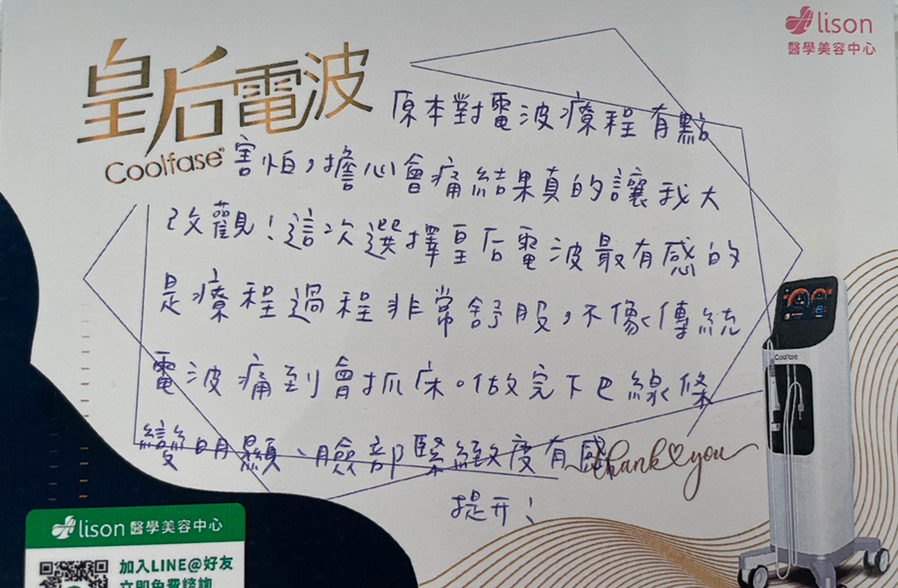 lison
醫學美容中心
皇后電波
Coolfase
原本對電波療程有點
害怕,擔心會痛結果真的讓我大
改觀!這次選擇皇后電波最有感的
是療程過程非常舒服,不像傳統
電波痛到會抓床。做完下巴線條
變明顯、臉部緊緻度有感
thank you
提升!
Coolfase
lison 醫學美容中心
加入LINE@好友
立即免費諮詢